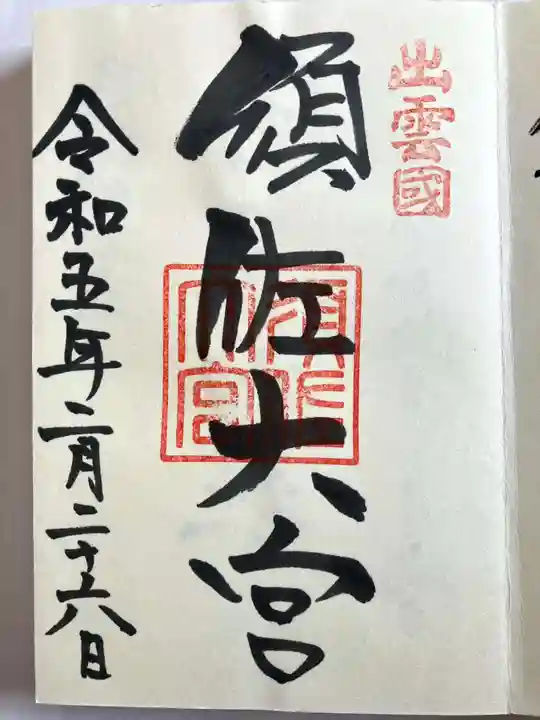 出雲國
須佐大宮
須佐
大宮
令和五年二月二十六日